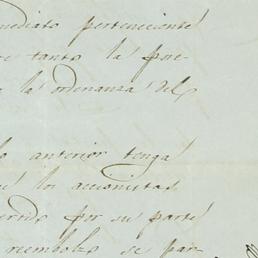 mediato perteneciente
e tanto la pre-
la ordenanza del
o anterior tenga
los accionistas
ertido por su parte
reembolzo se par-